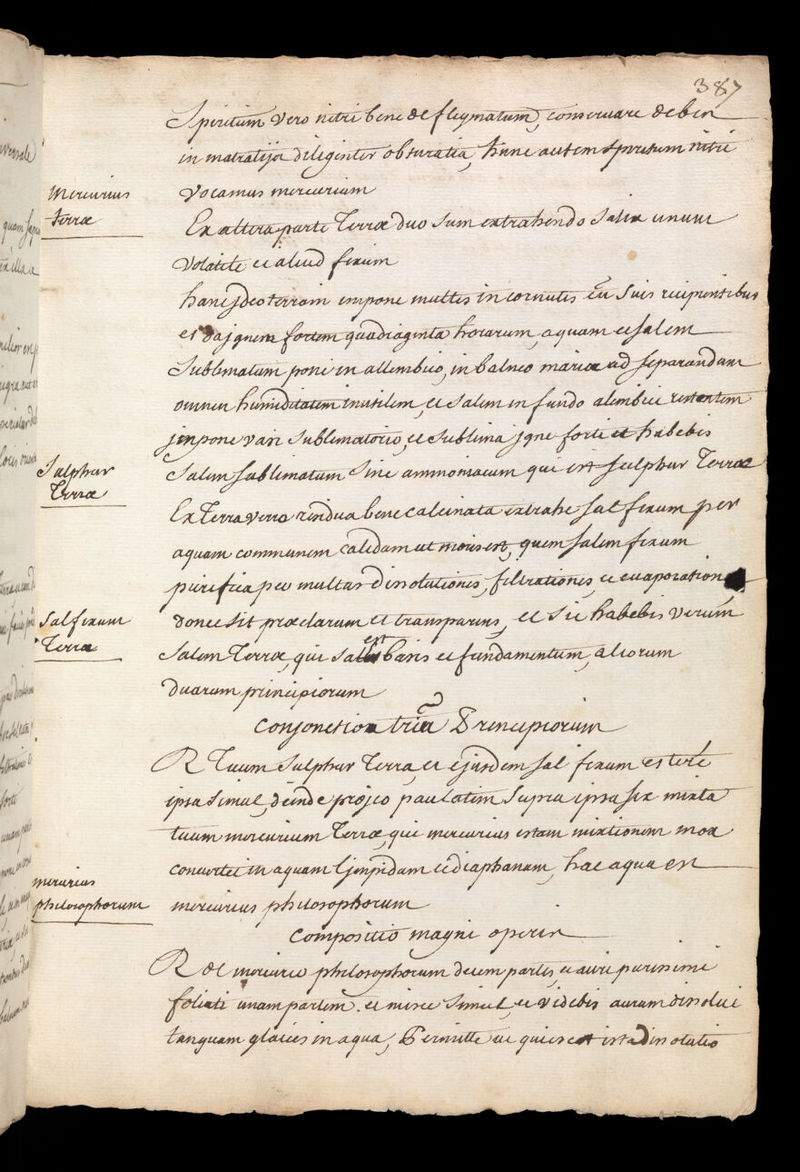 387
Spiritum vero nitri bene deflegmatum, conservare deben
in matratijs diligenter obturatis, hunc autem spiritum nitri
Mercurius
Terræ
vocamus mercurium
Ex altera parte Terræ duo sum extrahendo salia unum
volatile et aliud fixum
hanc jdeo terram impone multis in cornutis cũ suis recipientibus
et da jgnem fortem quadraginta horarum, aquam et salem
sublimatum pone in allembico, in balneo mariæ ad separandam
omnem humiditatem inutilem, et salem in fundo alembici restantem
jmpone vasi sublimatorio, et sublima jgne forti et habebis
Salphur
Terræ
Salem sublimatum sive ammoniacum qui est sulphur Terræ
Ex Terra vero residua bene calcinata extrahe sal fixum per
aquam communem calidam ut moris est, quem salem fixum
purifica per multas dissolutiones, filtrationes, et evaporationes
Sal fixum
Terræ
donec sit præclarum et transparens, et sic habebis verum
est
Salem Terræ, qui salis basis et fundamentum, aliorum
duarum principiorum
Conjonctio triũ Principiorum
R Tuum sulphur Terra, et ejusdem sal fixum et tere
ipsa simul, deinde projco paulatim supra ipsa sic mixta
tuum mercurium Terræ, qui mercurius istam mixtionem mox
convertet in aquam limpidam et diaphanam, hæc aqua est
mercurius
philosophorum
mercurius philosophorum
Compositio magni operis
R de mercurio philosophorum decem partes, et auri purissimi
foliati unam partem. et misce simul, et videbis aurum dissolui
tanquam glacies in aqua, Permitte ut quiescat ista dissolutio